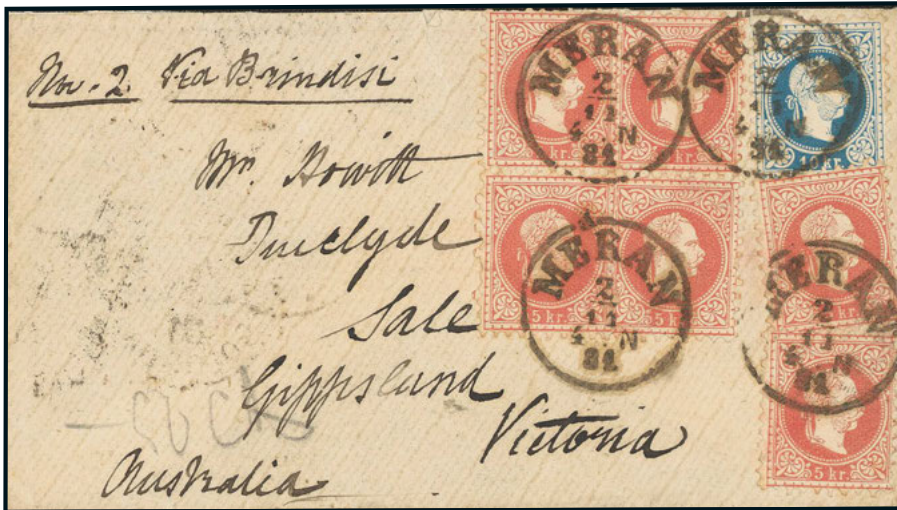 No. 2 Via Brindisi
Mr. Howitt
Sale
Gippsland
Victoria
Australia
MERAN
2
11
4 N
MERAN
11
4 N
MERAN
2
11
4 N
MERAN
2
11
N
5 kr.
kr.
10 kr.
5 kr.
5 kr.
5 kr.